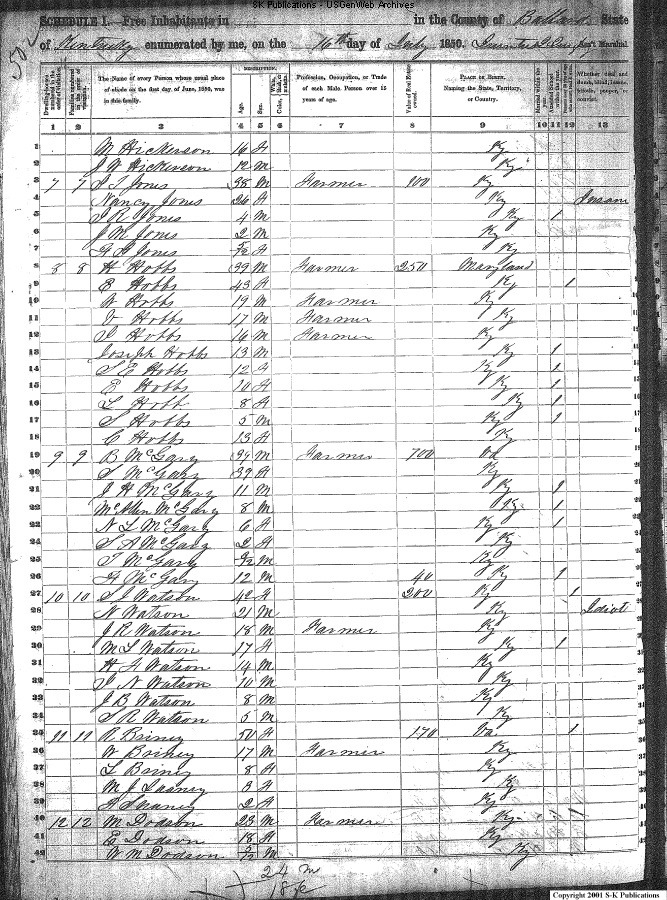 S-K Publications - USGenWeb Archives
SCHEDULE I.—Free Inhabitants in in the County of Ballard State
of Kentucky enumerated by me, on the 16th day of July 1850. Ass't Marshal
Dwelling-houses numbered in the order of visitation. Families numbered in the order of visitation. The Name of every Person whose usual place of abode on the first day of June, 1850, was in this family. DESCRIPTION. Age. Sex. Color, White, black, or mulatto. Profession, Occupation, or Trade of each Male Person over 15 years of age. Value of Real Estate owned. PLACE OF BIRTH. Naming the State, Territory, or Country. Married within the year. Attended School within the year. Whether deaf and dumb, blind, insane, idiotic, pauper, or convict.
1 2 3 4 5 6 7 8 9 10 11 12 13
1 M Hickerson 16 f Ky
2 J W Hickerson 12 m Ky
3 7 7 J S Jones 38 M Farmer 100 Ky
4 Nancy Jones 26 f Ky Insane
5 J R Jones 4 m Ky 1
6 J M Jones 2 M Ky
7 Jones f Ky
8 8 8 H Hobbs 39 M Farmer 250 Maryland
9 E Hobbs 43 f Ky 1
10 W Hobbs 19 M Farmer Ky
11 V Hobbs 17 M Farmer Ky
12 J Hobbs 16 M Farmer Ky
13 Joseph Hobbs 13 M Ky 1
14 S E Hobbs 12 f Ky 1
15 E Hobbs 10 f Ky 1
16 L Hobb 8 f Ky 1
17 S Hobbs 5 M Ky 1
18 C Hobbs 13 f Ky
19 9 9 B McGary M Farmer 700 Va
20 S McGary 39 f Ky
21 J H McGary 11 M Ky 1
22 McAllen McGary 8 M Ky 1
23 N L McGary 6 f Ky 1
24 S A McGary 2 f Ky
25 T McGary M Ky
26 McGary 12 M 40 Ky 1
27 10 10 S J Watson 42 f 200 Ky 1
28 N Watson 21 M Ky Idiot
29 J R Watson 18 M Farmer Ky
30 M L Watson 17 f Ky 1
31 H A Watson 14 M Ky
32 J N Watson 10 M Ky
33 J B Watson 8 M Ky
34 S R Watson 5 M Ky
35 11 11 R Briney 50 f 170 Va 1
36 W Briney 17 M Farmer Ky
37 L Briney 8 f Ky
38 M J 3 f Ky
39 2 f Ky
40 12 12 M Dodson 23 M Farmer Ky 1
41 E Dodson 18 f Ky
42 W M Dodson M Ky
24 m
18 fe
Copyright 2001 S-K Publications